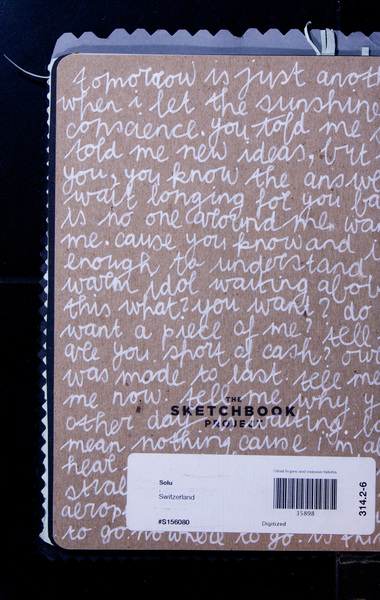 tomorrow is just anoth
when i let the sunshine
conscience. you told me
told me new ideas, but
you, you know the answe
wait longing for you ba
is no one around me wa
me. cause you know and
enough to understand i
warm idol waiting abov
this what? you want? do
want a piece of me? tell
are you short of cash? ou
was made to last. tell me
me now. tell me why y
THE
SKETCHBOOK
PROJECT
other day waiting. lo
mean nothing, cause i'm al
heat
strai
aerop
to go. nowhere to go. is this
Solu
Switzerland
#S156080
Great hopes and massive failures
35898
Digitized
314.2-6